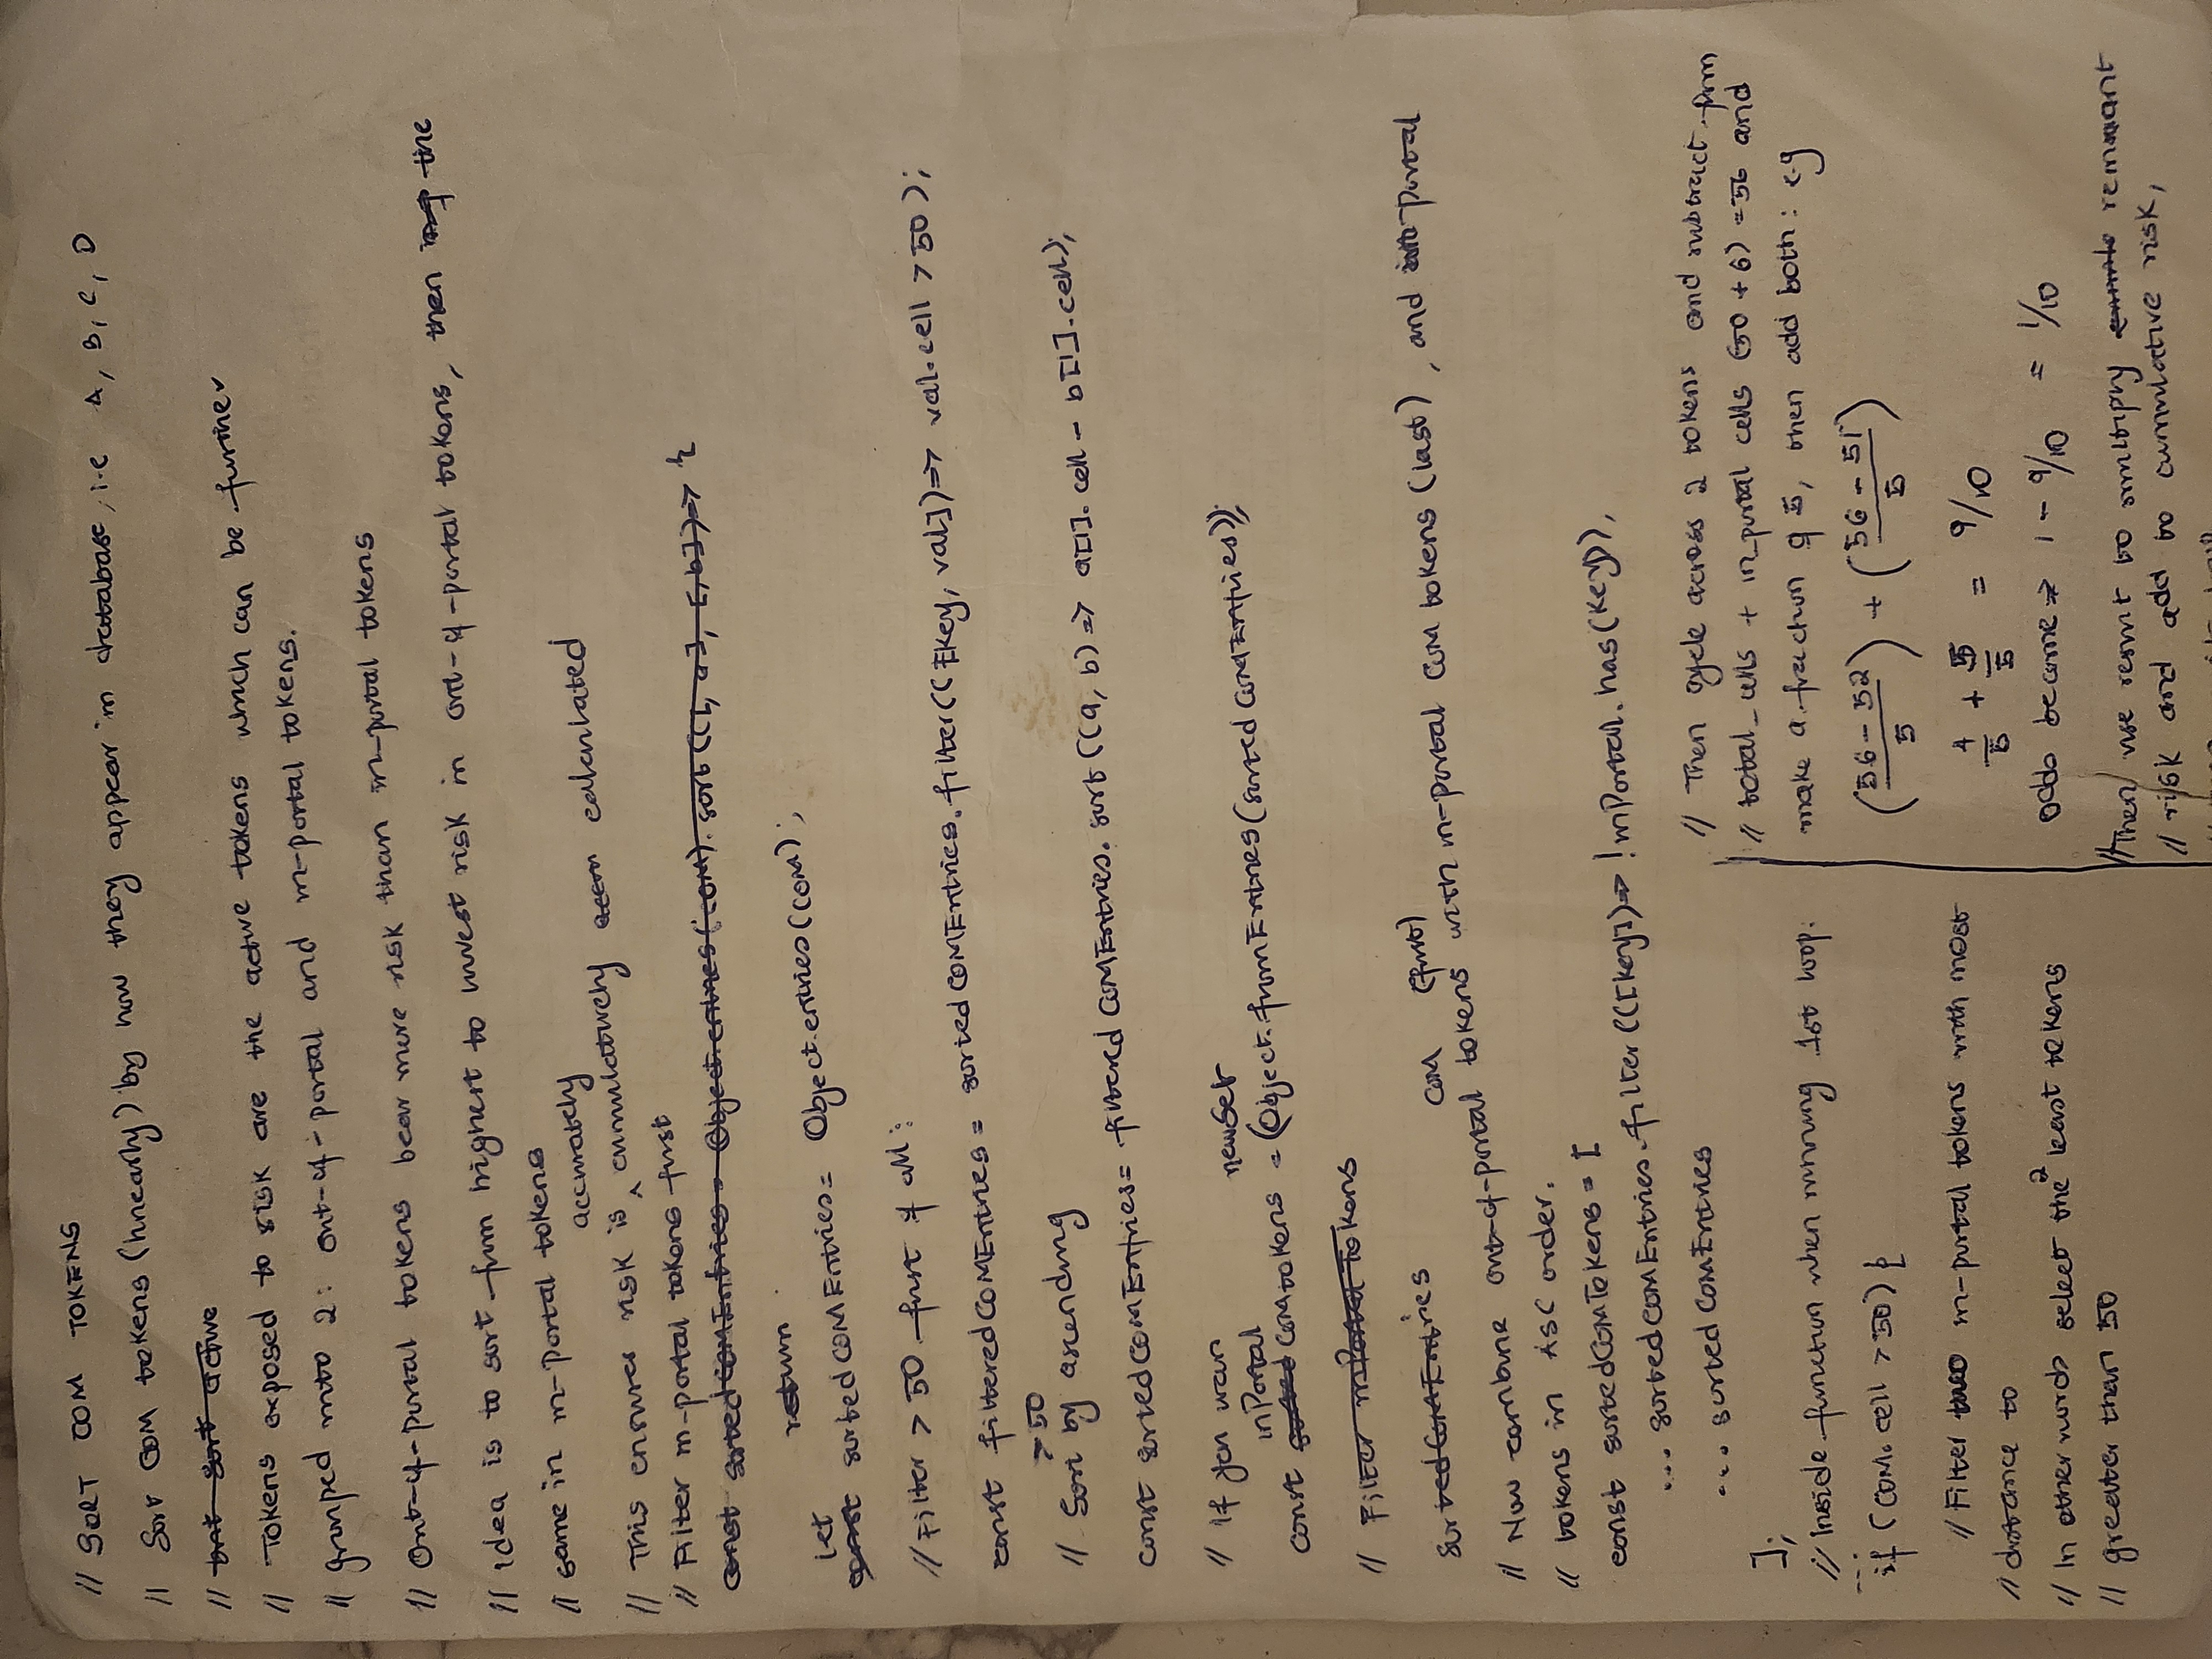 // SORT COM TOKENS
// Sort COM tokens (linearly) by how they appear in database, i.e A, B, C, D
// but sort active
// Tokens exposed to risk are the active tokens which can be further
// grouped into 2: out-of-portal and in-portal tokens.
// Out-of-portal tokens bear more risk than in-portal tokens
// idea is to sort from highest to lowest risk in out-of-portal tokens, then the
// same in in-portal tokens
accurately
// This ensures risk is ^ cumulatively accu calculated
// Filter in-portal tokens first
const sortedCOMEntries = Object.entries(COM).sort(([, a], [, b]) => {
return
let
const sortedCOMEntries = Object.entries(COM);
// Filter > 50 first of all:
const filteredCOMEntries = sortedCOMEntries.filter(([key, val]) => val.cell > 50);
> 50
// Sort by ascending
const sortedCOMEntries = filteredCOMEntries.sort((a, b) => a[1].cell - b[1].cell);
// If you wan
inPortal newSet
const sorted COMtokens = (Object.fromEntries(sortedCOMEntries));
// Filter inPortal Tokens
sortedCOMEntries
COM (first)
// Now combine out-of-portal tokens with in-portal COM tokens (last), and portal
// tokens in ASC order.
const sortedCOMTokens = [
... sortedCOMEntries.filter(([key]) => !inPortal.has(key)),
... sortedCOMEntries
];
// Inside function when running 1st loop.
...
if (COM.cell > 50) {
// Filter two in-portal tokens with most
// distance to
// In other words select the 2 least tokens
// greater than 50
// Then cycle across 2 tokens and subtract from
// total_cells + in_portal cells (50 + 6) = 56 and
make a fraction of 5, then add both: e.g
(56 - 52 / 5) + (56 - 51 / 5)
4/5 + 5/5 = 9/10
odds become => 1 - 9/10 = 1/10
// Then use result to multiply remnant
// risk and add to cumulative risk,